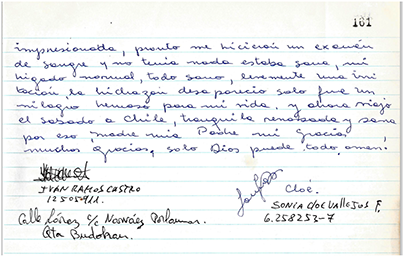 161
impresionada, pronto me hicieron un examen
de sangre y no tenia nada estaba sana, mi
higado normal, todo sano, levemente una irri
tación, la hichazón desaparecio solo fue un
milagro hemoso para mi vida. y ahora viajo
el sabado a Chile, tranquila renovada y sana
por eso, madre mia Padre mi Gracias,
muchos gracias, solo Dios puede todo. amen!
IVAN RAMOS CASTRO
12505911.
Calle s/c Narváez Porlamar.
Qta Budokan.
Cloé.
SONIA CLOE VALLEJOS F.
6.258253-7